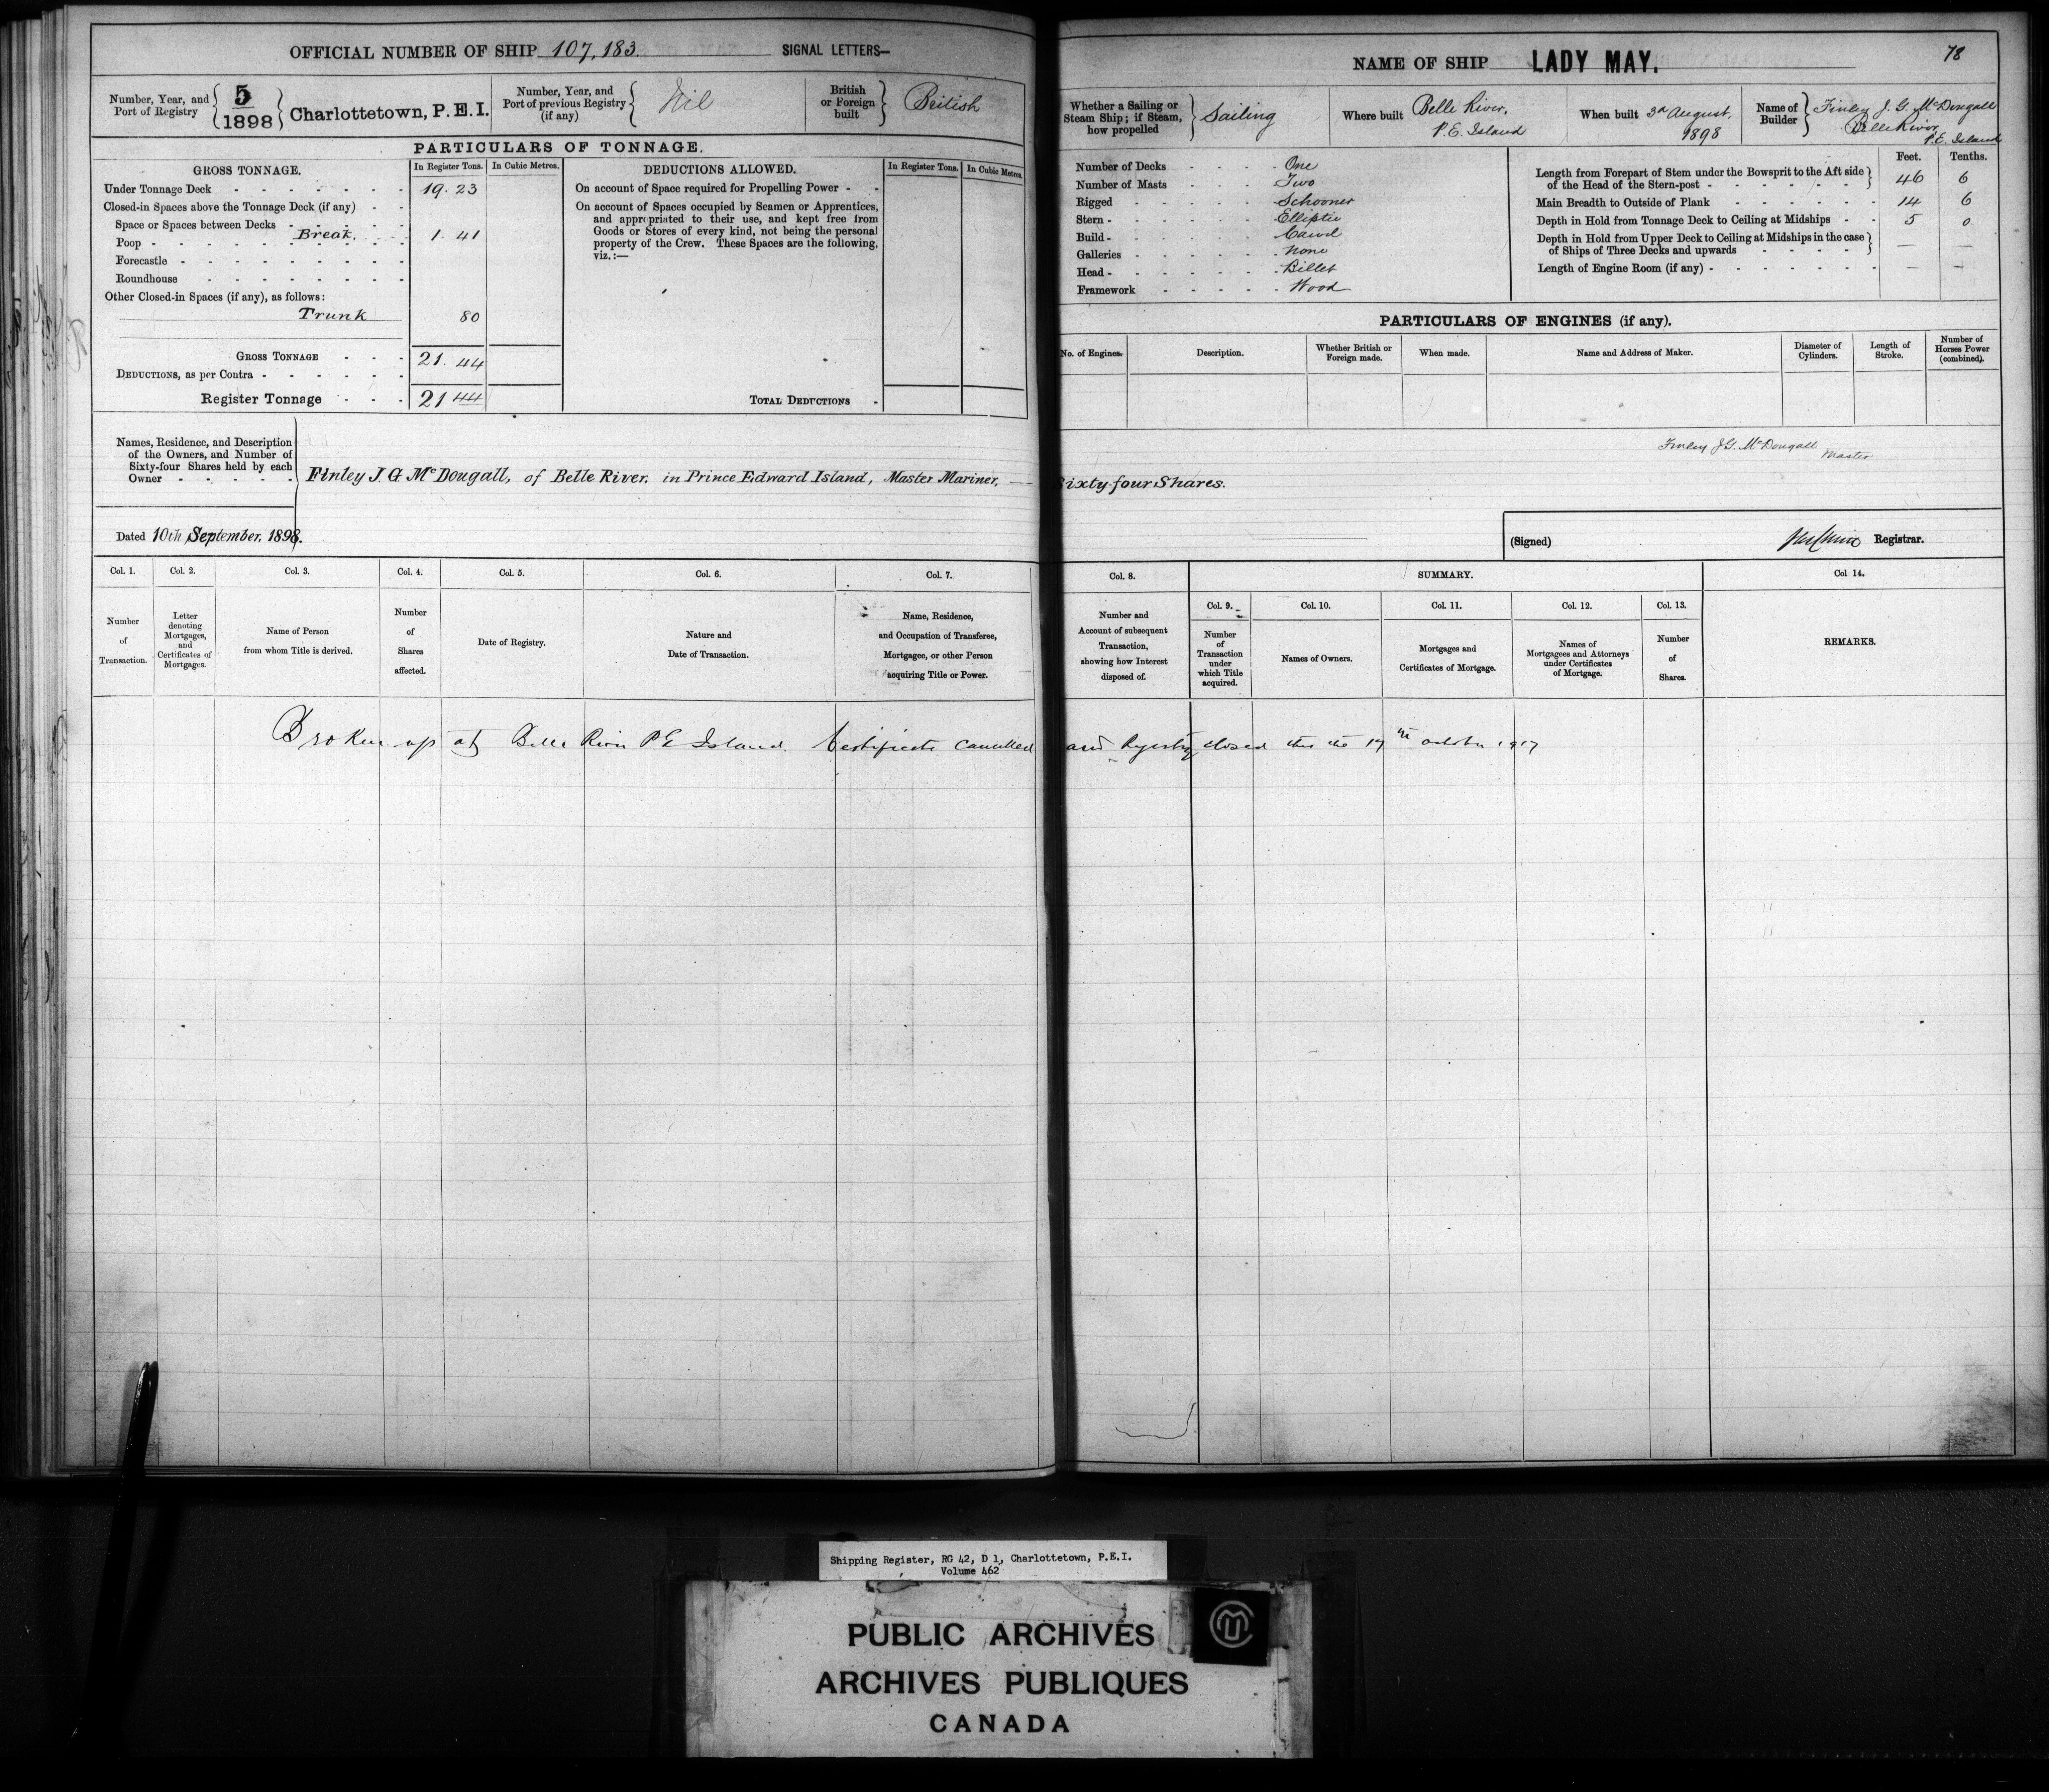 OFFICIAL NUMBER OF SHIP 107,183. SIGNAL LETTERS—
Number, Year, and Port of Registry 5/1898 Charlottetown, P.E.I.
Number, Year, and Port of previous Registry (if any) Nil
British or Foreign built British
PARTICULARS OF TONNAGE.
GROSS TONNAGE. In Register Tons. In Cubic Metres.
Under Tonnage Deck 19.23
Closed-in Spaces above the Tonnage Deck (if any)
Space or Spaces between Decks
Break. 1.41
Poop
Forecastle
Roundhouse
Other Closed-in Spaces (if any), as follows:
Trunk 80
GROSS TONNAGE 21.44
DEDUCTIONS, as per Contra
Register Tonnage 21 44
DEDUCTIONS ALLOWED. In Register Tons. In Cubic Metres.
On account of Space required for Propelling Power
On account of Spaces occupied by Seamen or Apprentices,
and appropriated to their use, and kept free from
Goods or Stores of every kind, not being the personal
property of the Crew. These Spaces are the following,
viz.:—
TOTAL DEDUCTIONS
Names, Residence, and Description
of the Owners, and Number of
Sixty-four Shares held by each
Owner
Finley J. G McDougall, of Belle River, in Prince Edward Island, Master Mariner,
Dated 10th September, 1898.
Col. 1. Col. 2. Col. 3. Col. 4. Col. 5. Col. 6. Col. 7.
Number of Transaction.
Letter denoting Mortgages, and Certificates of Mortgages.
Name of Person from whom Title is derived.
Number of Shares affected.
Date of Registry.
Nature and Date of Transaction.
Name, Residence, and Occupation of Transferee, Mortgagee, or other Person acquiring Title or Power.
Broken up at Belle River P E Island. Certificate cancelled
78
NAME OF SHIP LADY MAY.
Whether a Sailing or Steam Ship; if Steam, how propelled Sailing
Where built Belle River, P.E. Island
When built 3d August, 1898
Name of Builder Finley J. G. McDougall Belle River P.E. Island
Number of Decks One
Number of Masts Two
Rigged Schooner
Stern Elliptic
Build Carvel
Galleries None
Head Billet
Framework Wood
Feet. Tenths.
Length from Forepart of Stem under the Bowsprit to the Aft side
of the Head of the Stern-post 46 6
Main Breadth to Outside of Plank 14 6
Depth in Hold from Tonnage Deck to Ceiling at Midships 5 0
Depth in Hold from Upper Deck to Ceiling at Midships in the case
of Ships of Three Decks and upwards — —
Length of Engine Room (if any) — —
PARTICULARS OF ENGINES (if any).
No. of Engines. Description. Whether British or Foreign made. When made. Name and Address of Maker. Diameter of Cylinders. Length of Stroke. Number of Horses Power (combined).
Finley J G. McDougall
Master
Sixty-four Shares.
(Signed) Registrar.
Col. 8. SUMMARY. Col 14.
Col. 9. Col. 10. Col. 11. Col. 12. Col. 13.
Number and Account of subsequent Transaction, showing how Interest disposed of.
Number of Transaction under which Title acquired.
Names of Owners.
Mortgages and Certificates of Mortgage.
Names of Mortgagees and Attorneys under Certificates of Mortgage.
Number of Shares.
REMARKS.
and Registry closed this the 19th October 1917
Shipping Register, RG 42, D 1, Charlottetown, P.E.I.
Volume 462
PUBLIC ARCHIVES
ARCHIVES PUBLIQUES
CANADA